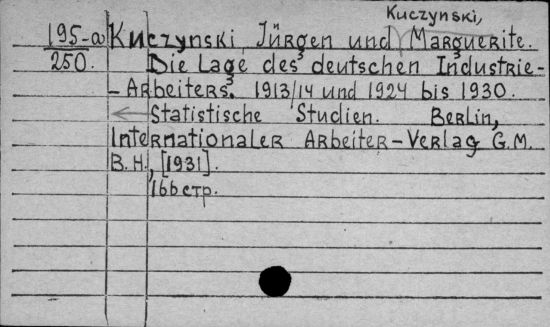 Kuczynski,
195-a Kuczynski, Jürgen und Marguerite.
250. Die Lage des deutschen Industrie-
-Arbeiters. 1913/14 und 1924 bis 1930.
Statistische Studien. Berlin,
Internationaler Arbeiter-Verlag G.M.
B.H., [1931].
166 стр.